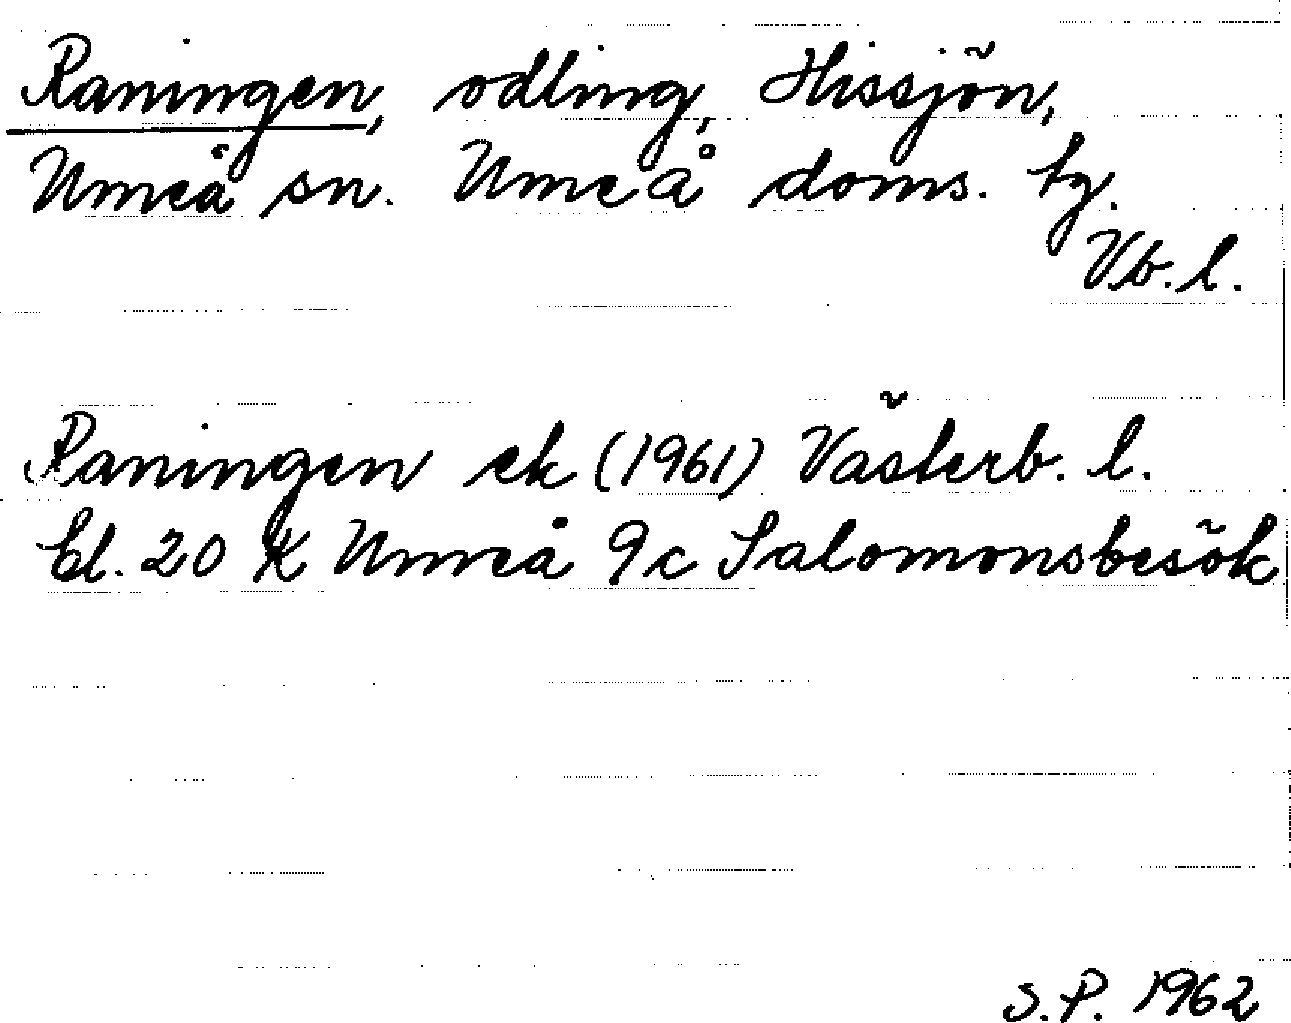 Raningen, odling, Hissjön,
Umeå sn. Umeå doms. tg.
Vb. l.
Raningen ek (1961) Västerb. l.
bl. 20 K Umeå 9c Salomonsbesök
S.P. 1962